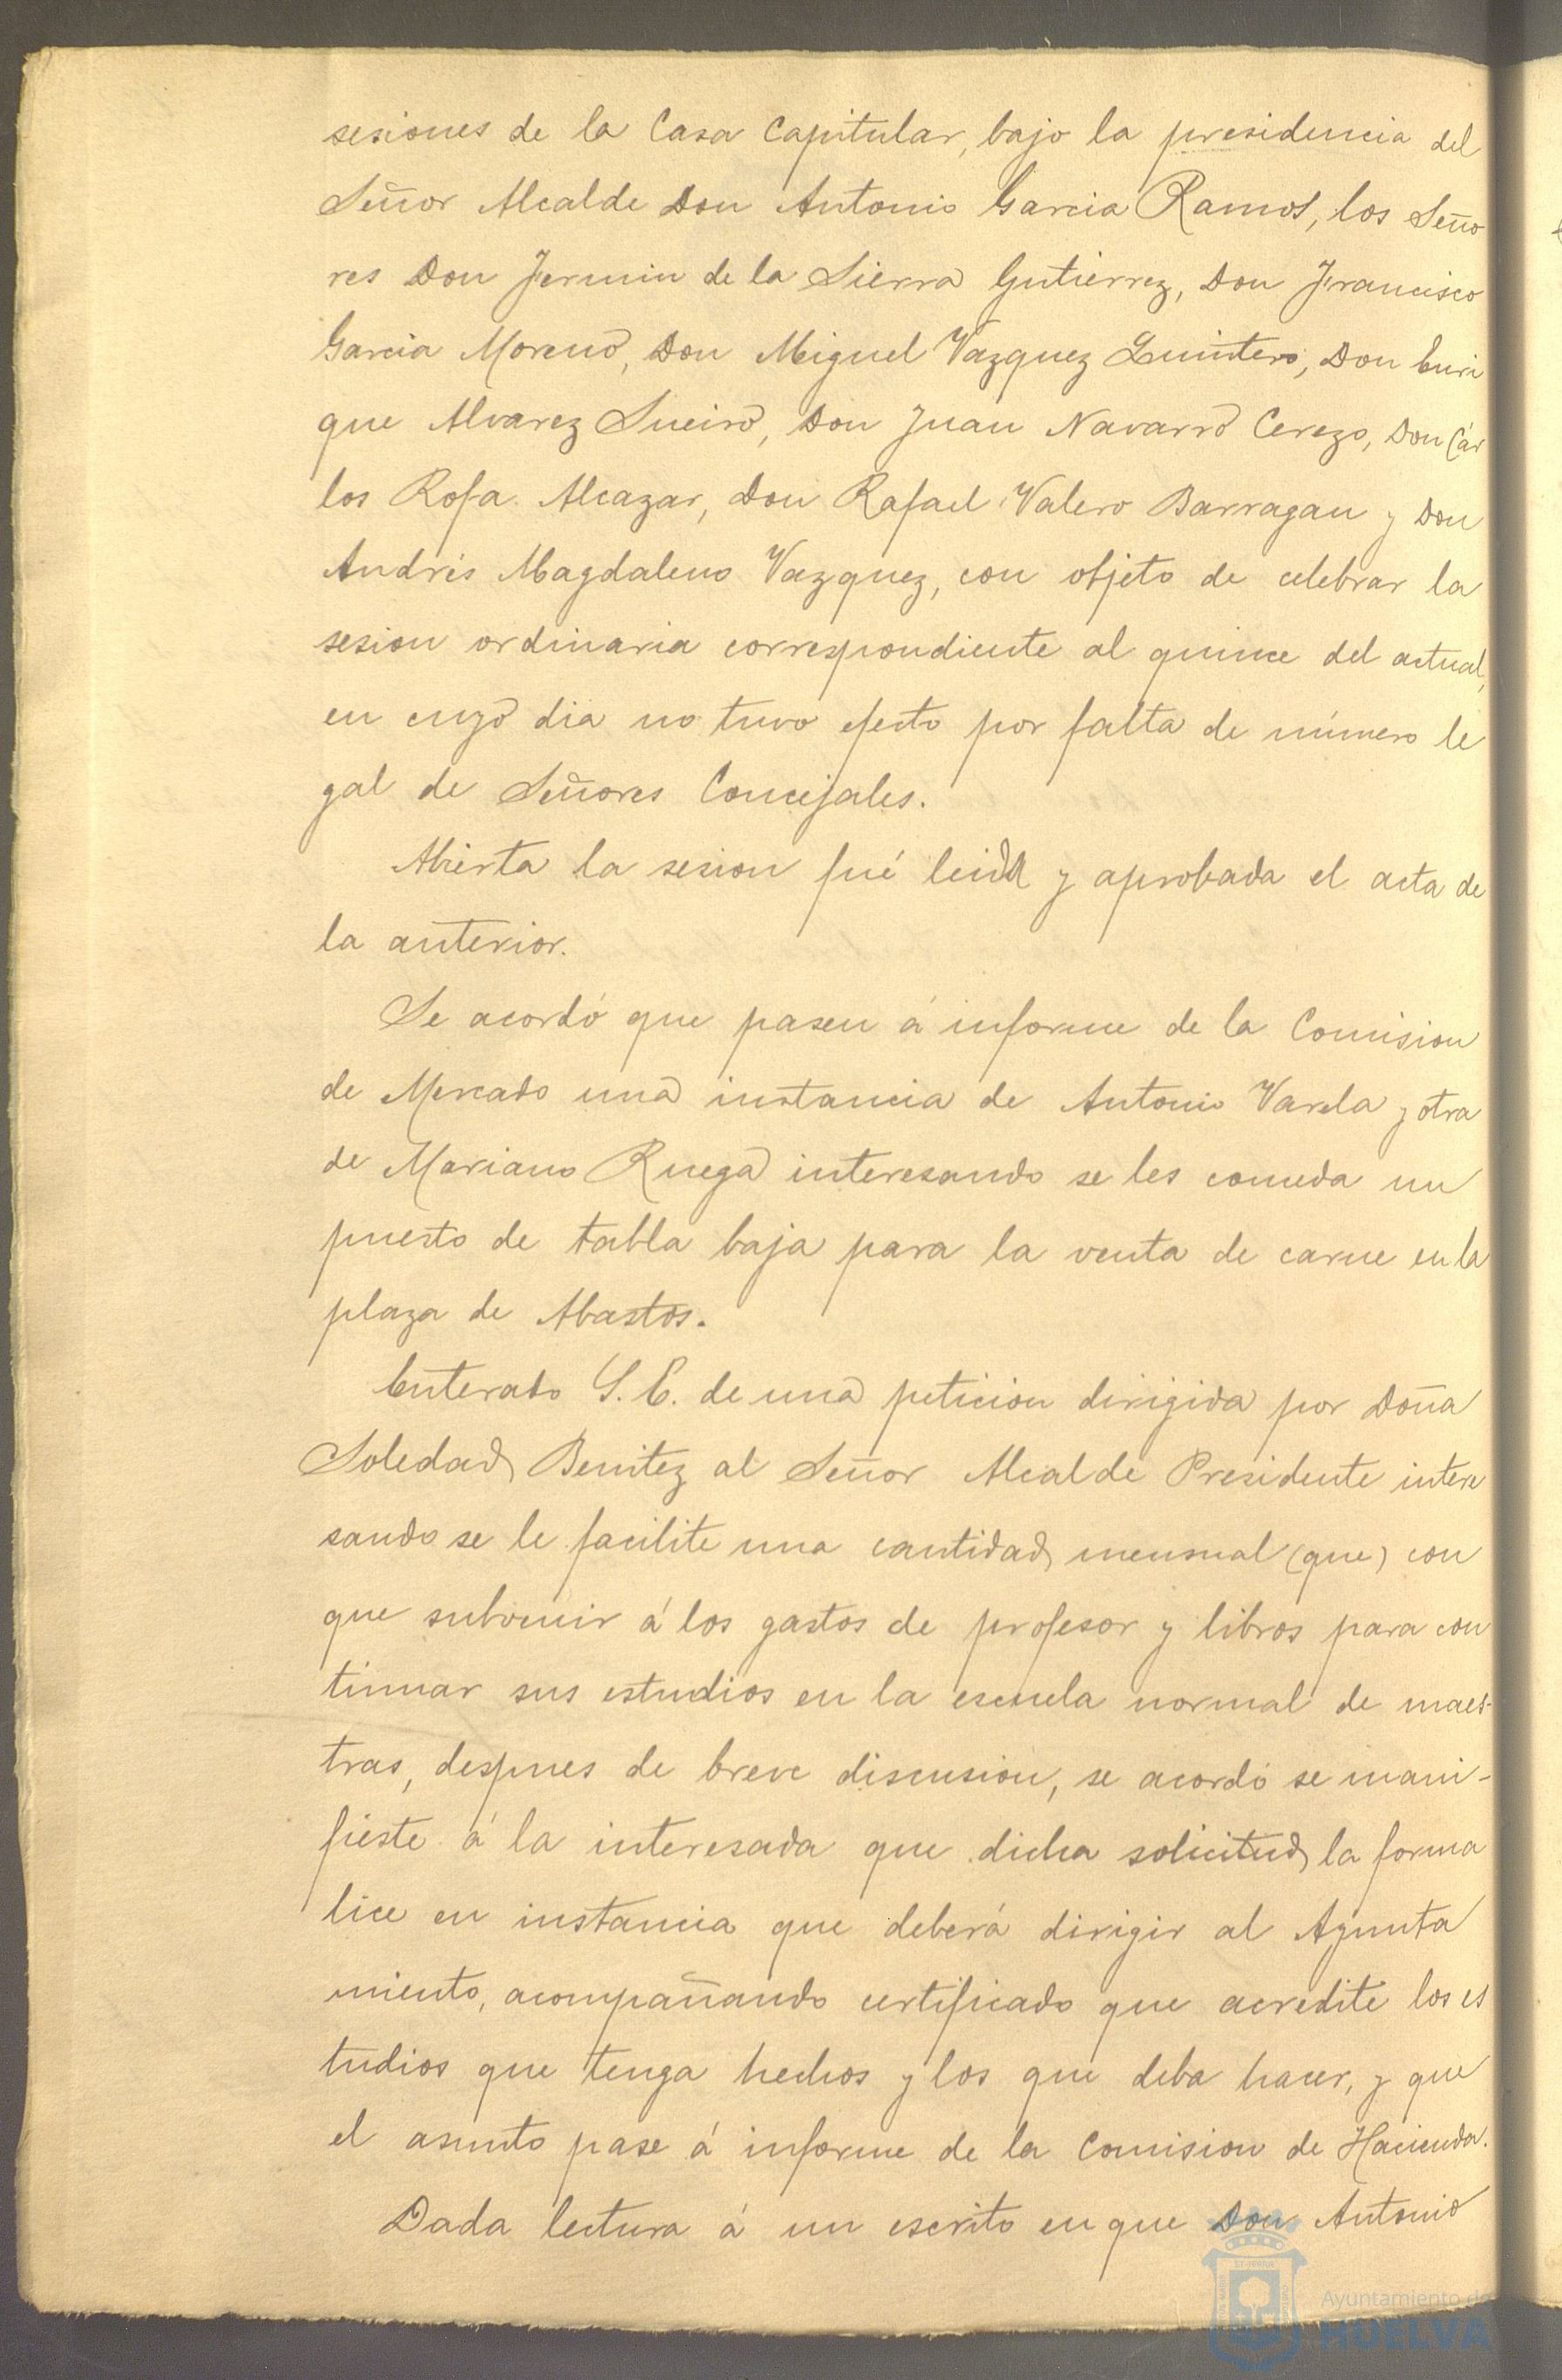 sesiones de la Casa Capitular, bajo la presidencia del
Señor Alcalde Don Antonio Garcia Ramos, los Seño
res Don Fermin de la Sierra Gutierrez, Don Francisco
Garcia Moreno, Don Miguel Vazquez Quintero, Don Enri
que Alvarez Sueiro, Don Juan Navarro Cerezo, Don Cár
los Rofa Alcazar, Don Rafael Valero Barragan y Don
Andrés Magdaleno Vazquez, con objeto de celebrar la
sesion ordinaria correspondiente al quince del actual,
en cuyo dia no tuvo efecto por falta de número le
gal de Señores Concejales.
Abierta la sesion fué leida y aprobada el acta de
la anterior.
Se acordó que pasen á informe de la Comision
de Mercado una instancia de Antonio Varela y otra
de Mariano Ruega interesando se les conceda un
puesto de tabla baja para la venta de carne en la
plaza de Abastos.
Enterado S. E. de una peticion dirigida por Doña
Soledad Benitez al Señor Alcalde Presidente intere
sando se le facilite una cantidad mensual (que) con
que subvenir á los gastos de profesor y libros para con
tinuar sus estudios en la escuela normal de maes-
tras, despues de breve discusion, se acordó se mani-
fieste á la interesada que dicha solicitud la forma
lice en instancia que deberá dirigir al Ayunta
miento, acompañando certificado que acredite los es
tudios que tenga hechos y los que deba hacer, y que
el asunto pase á informe de la Comision de Hacienda.
Dada lectura á un escrito en que Don Antonio
Ayuntamiento de
HUELVA